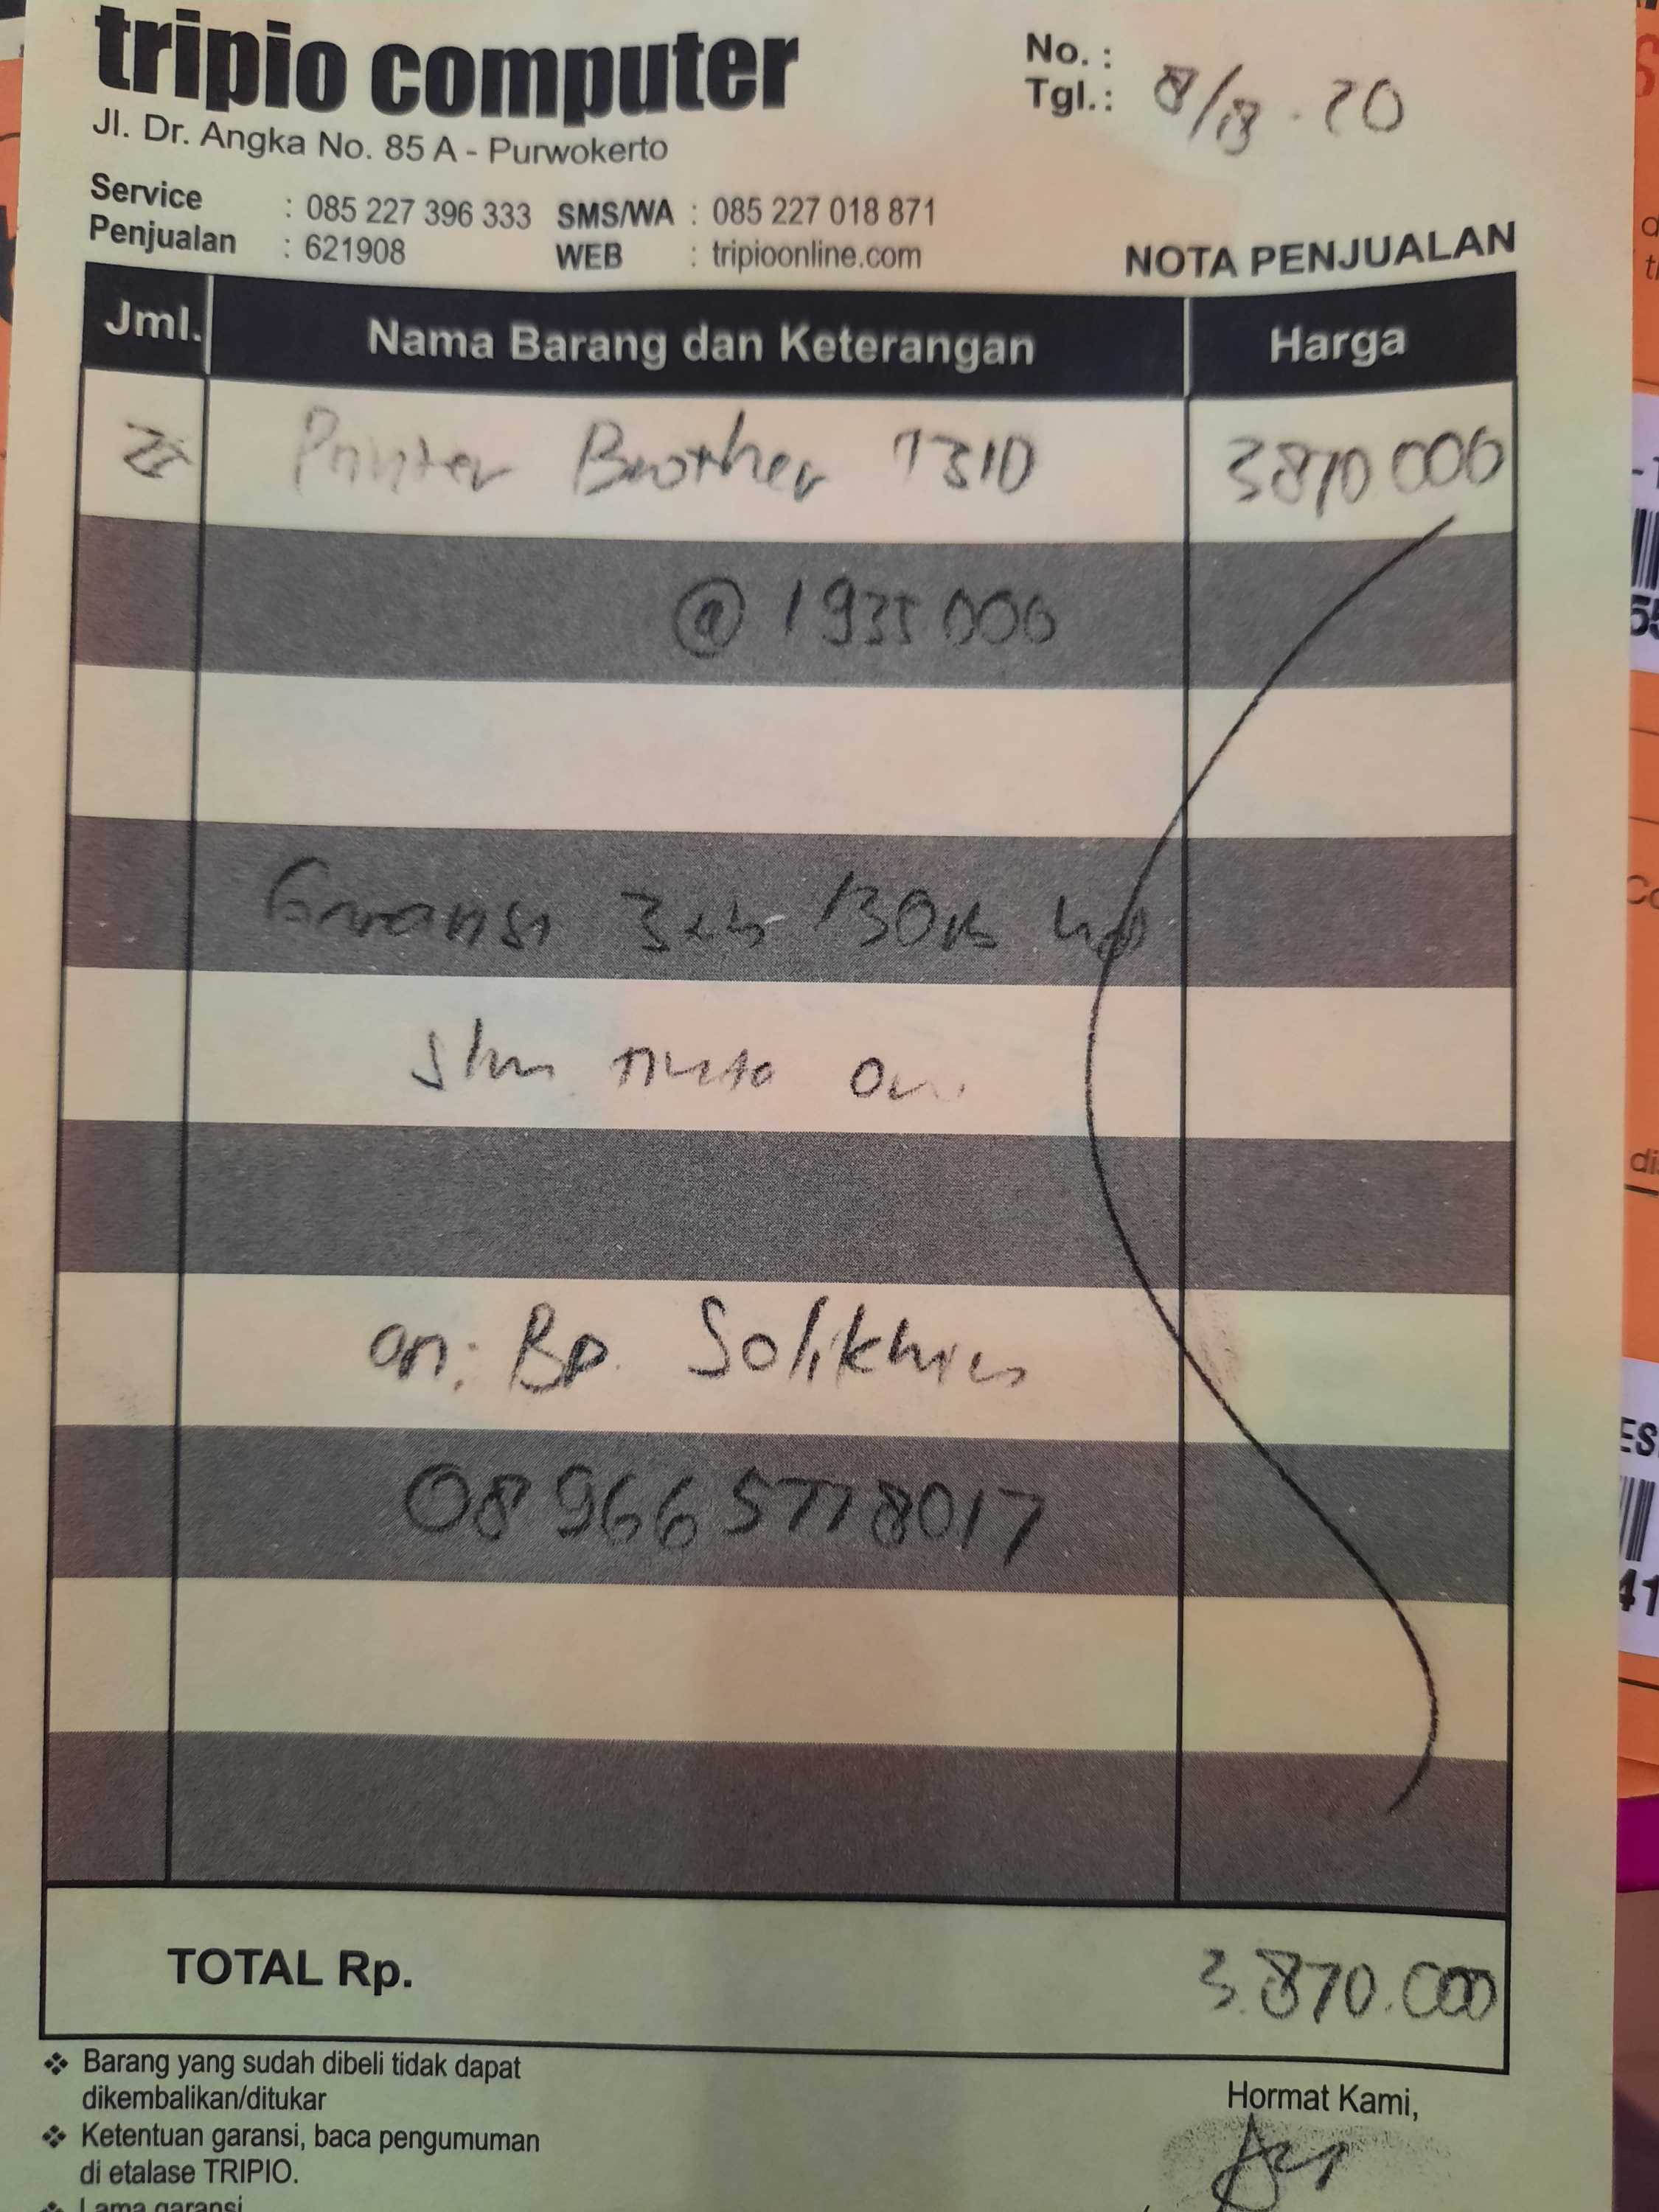 tripio computer
Jl. Dr. Angka No. 85 A - Purwokerto
No. :
Tgl.: 8/18 . 20
Service : 085 227 396 333 SMS/WA : 085 227 018 871
Penjualan : 621908 WEB : tripioonline.com
NOTA PENJUALAN
Jml. Nama Barang dan Keterangan Harga
Printer Brother T310 3870000
@ 1935000
Garansi 3th /30rb
an: Bp. Solikhin
TOTAL Rp. 3.870.000
❖ Barang yang sudah dibeli tidak dapat
dikembalikan/ditukar
❖ Ketentuan garansi, baca pengumuman
di etalase TRIPIO.
❖ Lama garansi
Hormat Kami,